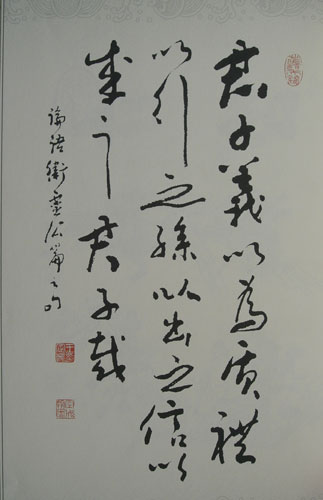 君子義以為質禮
以行之孫以出之信以
成之君子哉
論語衛靈公篇之句